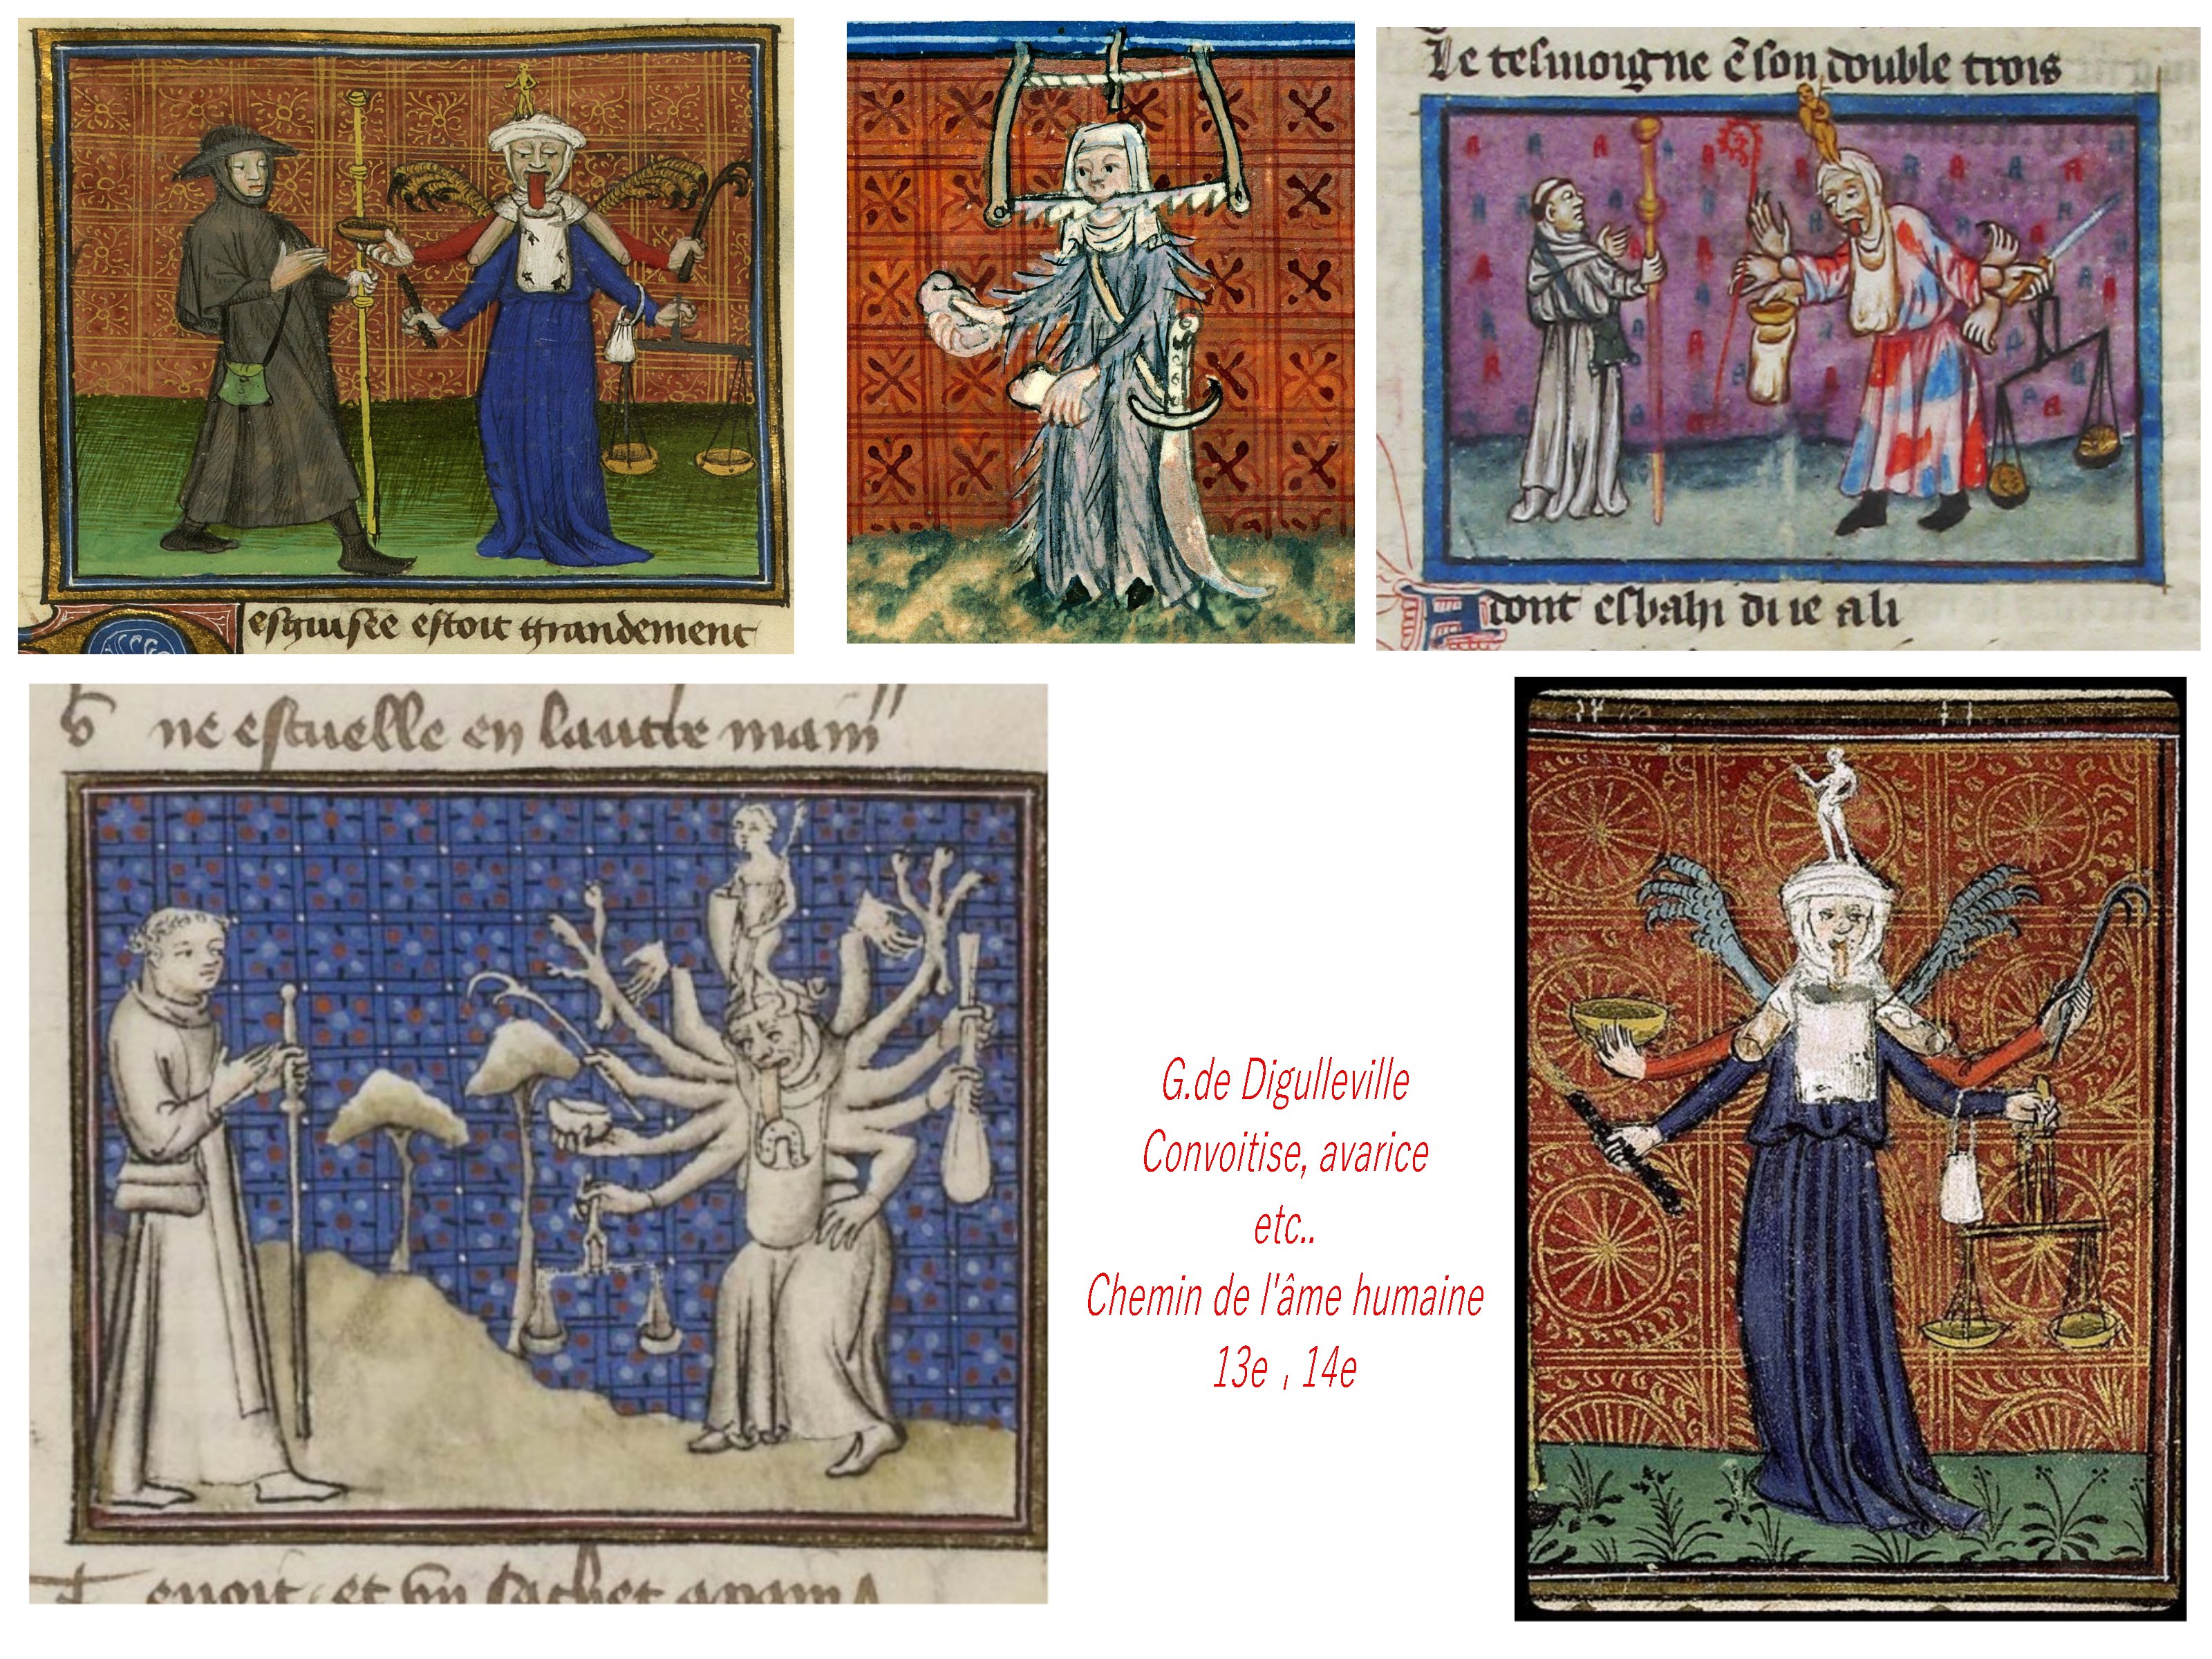 esguisee estoit grandement
Le tesmoigne e son double trois
dont esbahi
ne escuelle en lautre main
G.de Digulleville
Convoitise, avarice
etc..
Chemin de l'âme humaine
13e , 14e